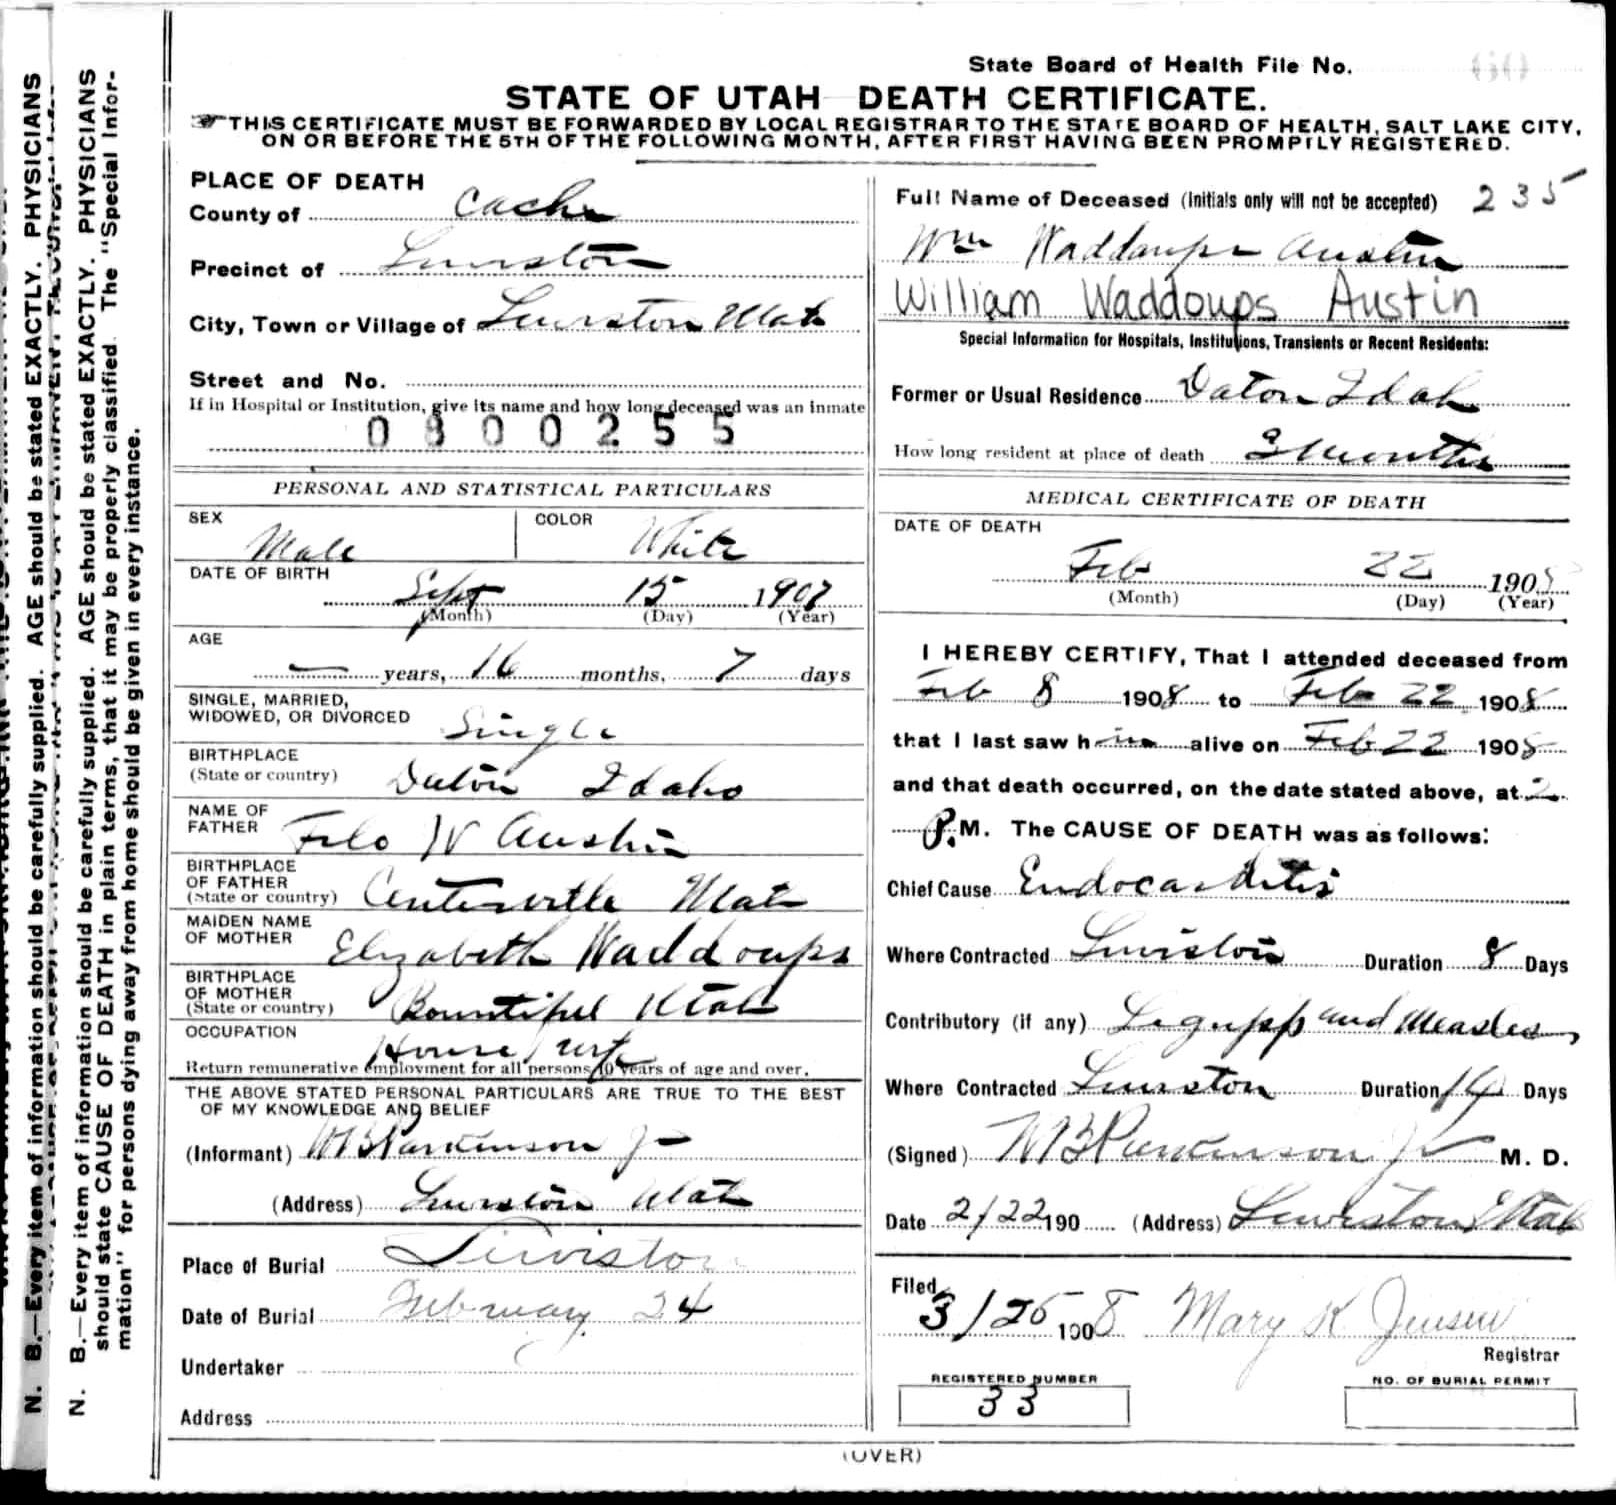 State Board of Health File No. 60
STATE OF UTAH DEATH CERTIFICATE.
THIS CERTIFICATE MUST BE FORWARDED BY LOCAL REGISTRAR TO THE STATE BOARD OF HEALTH, SALT LAKE CITY,
ON OR BEFORE THE 5TH OF THE FOLLOWING MONTH, AFTER FIRST HAVING BEEN PROMPTLY REGISTERED.
PLACE OF DEATH
County of Cache
Precinct of Lewiston
City, Town or Village of Lewiston Utah
Street and No.
If in Hospital or Institution, give its name and how long deceased was an inmate
0800255
PERSONAL AND STATISTICAL PARTICULARS
SEX Male COLOR White
DATE OF BIRTH
Sept 15 1907
(Month) (Day) (Year)
AGE
— years, 16 months, 7 days
SINGLE, MARRIED,
WIDOWED, OR DIVORCED Single
BIRTHPLACE
(State or country) Daton Idaho
NAME OF
FATHER Filo W Austin
BIRTHPLACE
OF FATHER
(State or country) Centerville Utah
MAIDEN NAME
OF MOTHER Elizabeth Waddoups
BIRTHPLACE
OF MOTHER
(State or country) Bountiful Utah
OCCUPATION
House
Return remunerative employment for all persons 10 years of age and over.
THE ABOVE STATED PERSONAL PARTICULARS ARE TRUE TO THE BEST
OF MY KNOWLEDGE AND BELIEF
(Informant) WB Parkinson Jr
(Address) Lewiston Utah
Place of Burial Lewiston
Date of Burial February 24
Undertaker
Address
Full Name of Deceased (Initials only will not be accepted) 235
Wm Waddoups Austin
William Waddoups Austin
Special Information for Hospitals, Institutions, Transients or Recent Residents:
Former or Usual Residence Daton Idah
How long resident at place of death 2 Months
MEDICAL CERTIFICATE OF DEATH
DATE OF DEATH
Feb 22 1908
(Month) (Day) (Year)
I HEREBY CERTIFY, That I attended deceased from
Feb 8 1908 to Feb 22 1908
that I last saw him alive on Feb 22 1908
and that death occurred, on the date stated above, at 2
P. M. The CAUSE OF DEATH was as follows:
Chief Cause Endocarditis
Where Contracted Lewiston Duration 8 Days
Contributory (if any) Lagripp and Measles
Where Contracted Lewiston Duration 14 Days
(Signed) WB Parkinson Jr M. D.
Date 2/22 190 (Address) Lewiston Utah
Filed
3/25 1908 Mary K Jensen
Registrar
REGISTERED NUMBER
33
NO. OF BURIAL PERMIT
(OVER)
N. B.—Every item of information should be carefully supplied. AGE should be stated EXACTLY. PHYSICIANS
N. B.—Every item of information should be carefully supplied. AGE should be stated EXACTLY. PHYSICIANS
should state CAUSE OF DEATH in plain terms, that it may be properly classified. The "Special Infor-
mation" for persons dying away from home should be given in every instance.